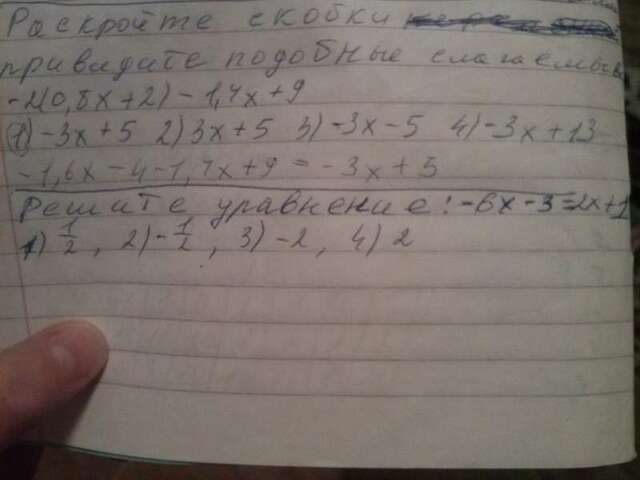 Раскройте скобки
привидите подобные слагаемые
-2(0,8x+2)-1,4x+9
1)-3x+5 2)3x+5 3)-3x-5 4)-3x+13
-1,6x-4-1,4x+9=-3x+5
Решите уравнение:-6x-3=2x+1
1)1/2, 2)-1/2, 3)-2, 4)2